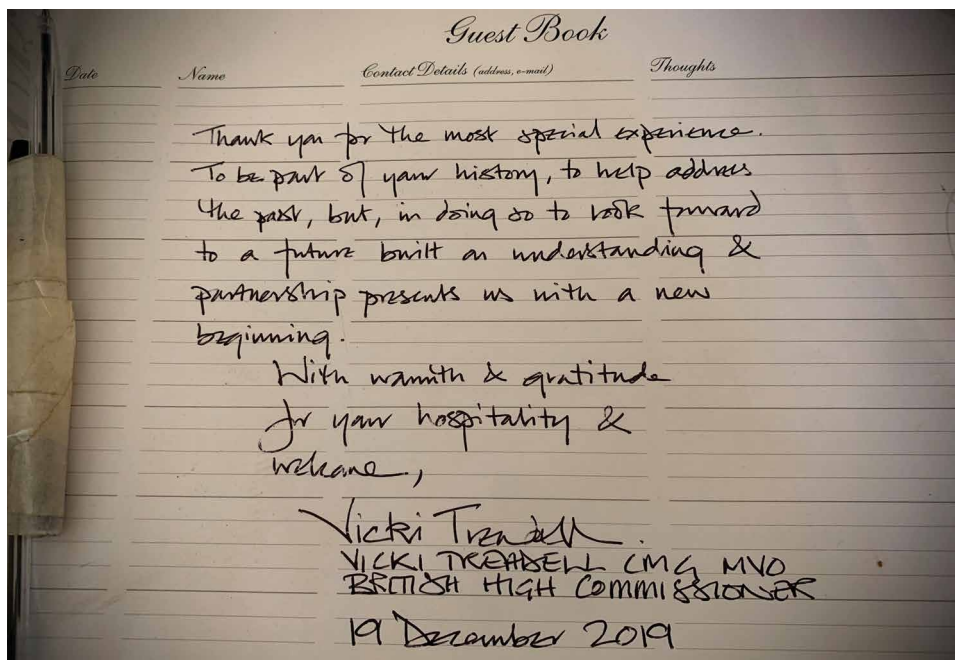 Guest Book
Date Name Contact Details (address, e-mail) Thoughts
Thank you for the most special experience.
To be part of your history, to help address
the past, but, in doing so to look forward
to a future built on understanding &
partnership presents us with a new
beginning.
With warmth & gratitude
for your hospitality &
welcome,
Vicki Treadell.
VICKI TREADELL CMG MVO
BRITISH HIGH COMMISSIONER
19 December 2019